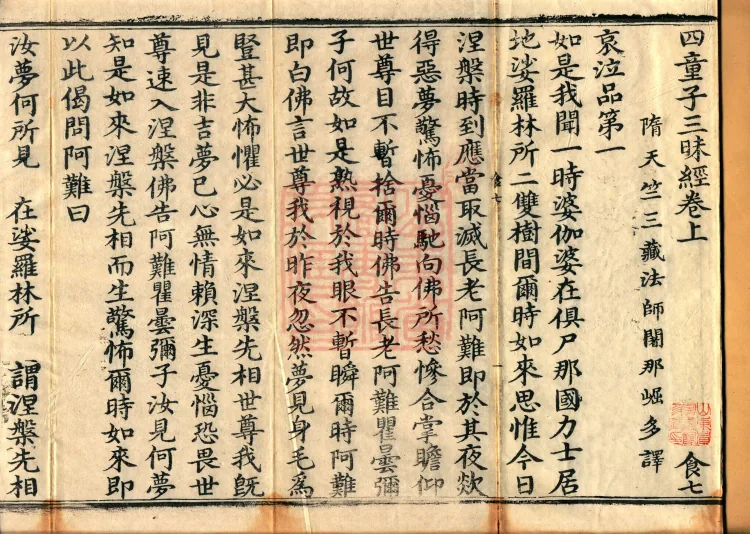 四童子三昧經卷上
食七
隋天竺三藏法師闍那崛多譯
哀泣品第一
如是我聞一時婆伽婆在俱尸那國力士居
地娑羅林所二雙樹間爾時如來思惟今日
食七
涅槃時到應當取滅長老阿難即於其夜欻
得惡夢驚怖憂惱馳向佛所愁慘合掌瞻仰
世尊目不暫捨爾時佛告長老阿難瞿曇彌
子何故如是熟視於我眼不暫瞬爾時阿難
即白佛言世尊我於昨夜忽然夢見身毛為
豎甚大怖懼必是如來涅槃先相世尊我既
見是非吉夢已心無情賴深生憂惱恐畏世
尊速入涅槃佛告阿難瞿曇彌子汝見何夢
知是如來涅槃先相而生驚怖爾時如來即
以此偈問阿難曰
汝夢何所見 在娑羅林所 謂涅槃先相